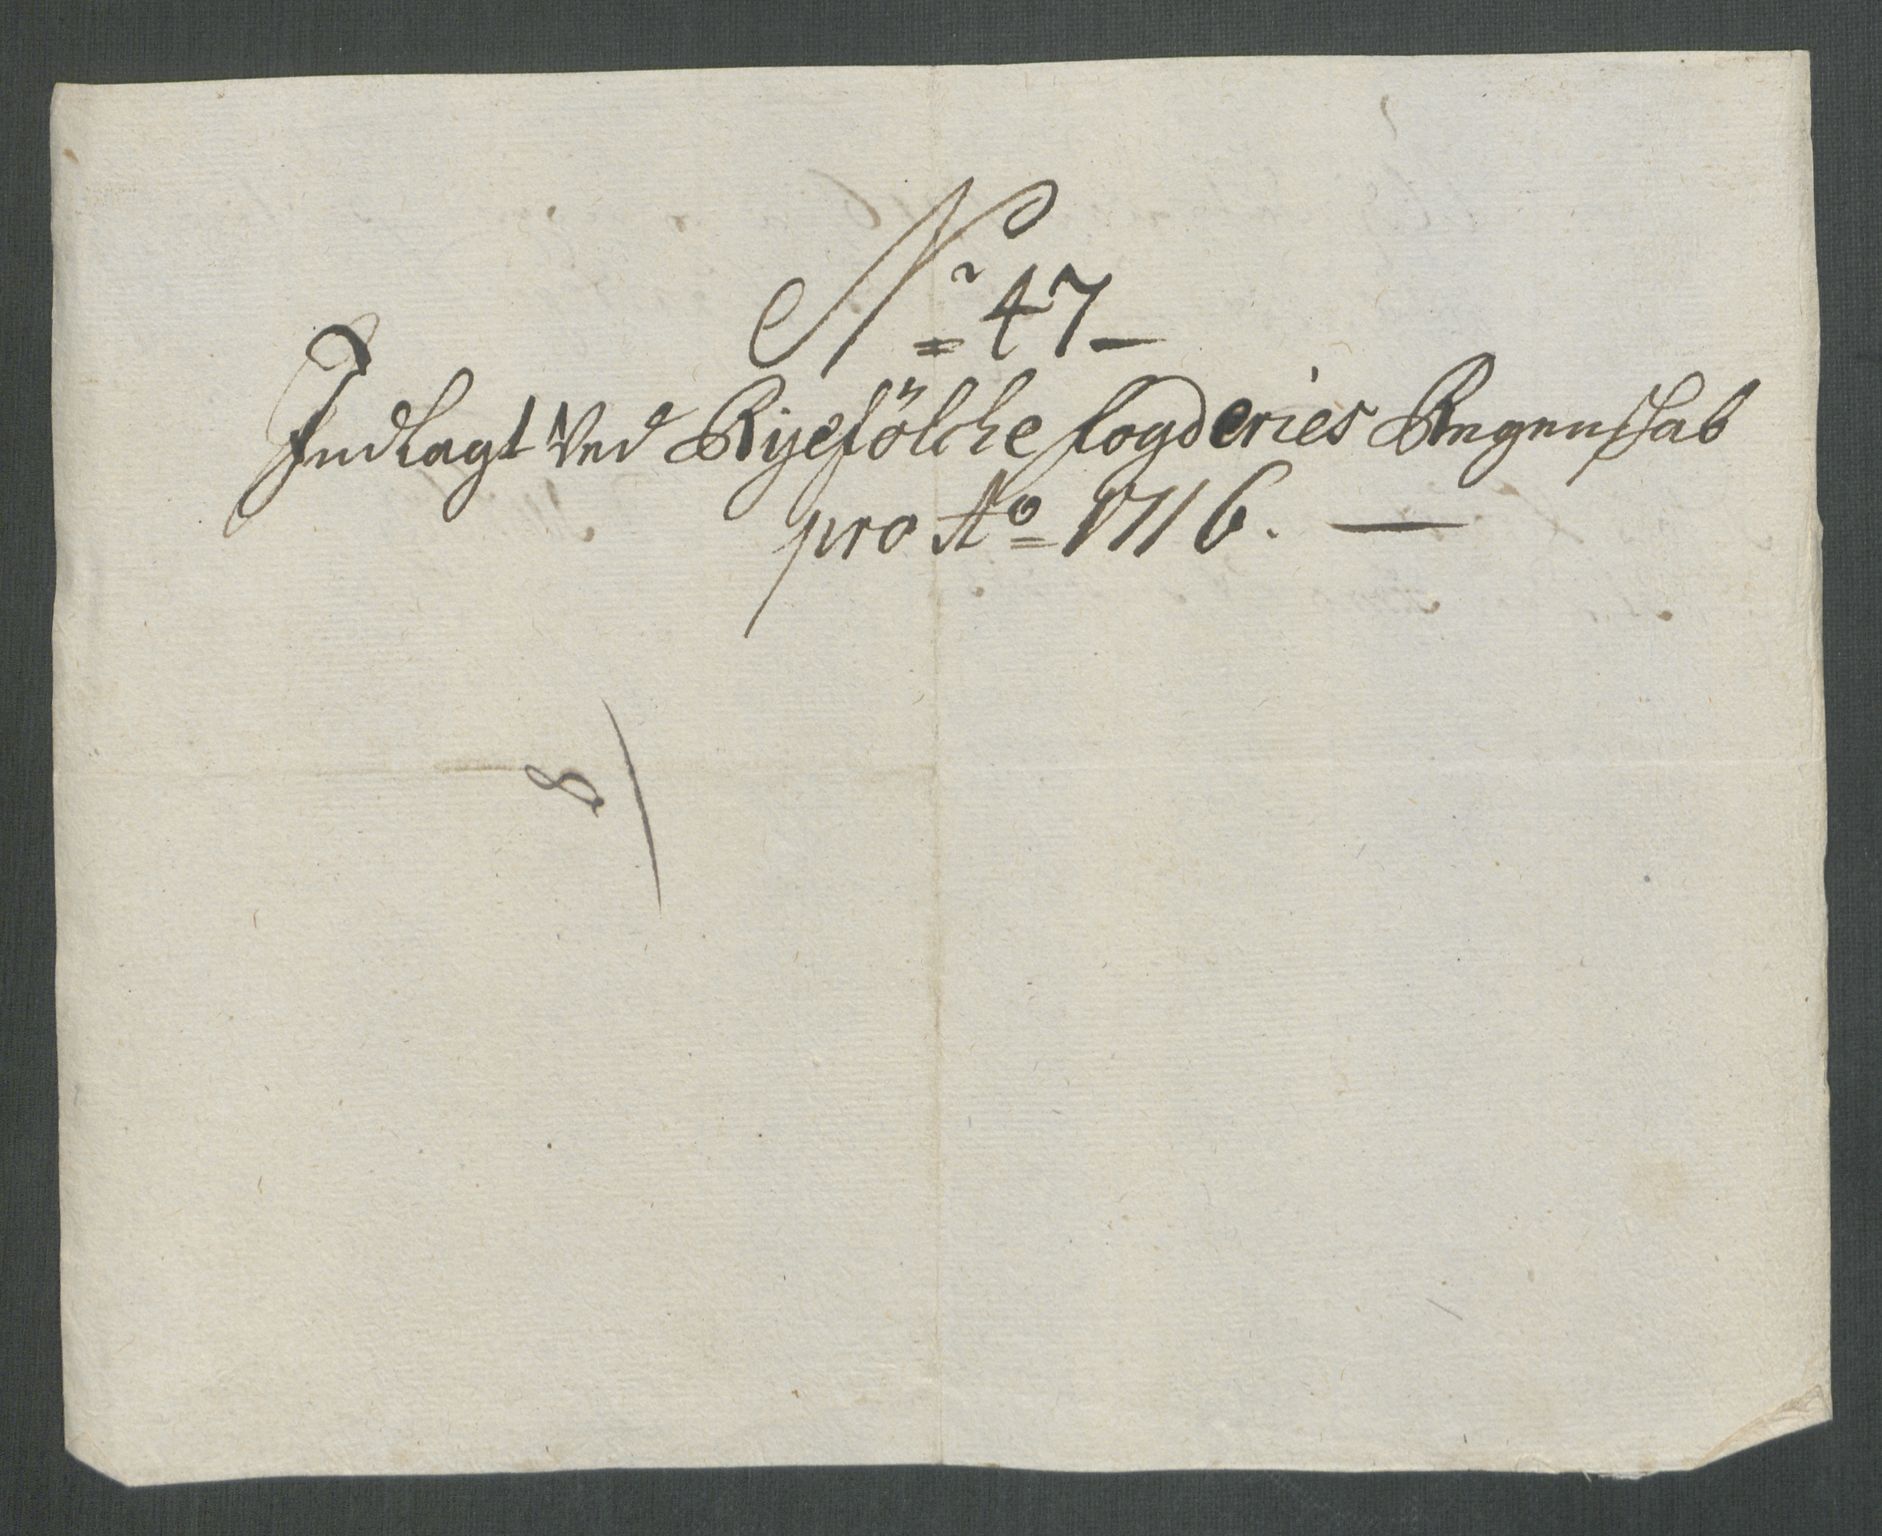 No 47
Indlagt Ved Ryefölche fogderies Regenskab
pro Ao 1716.
8